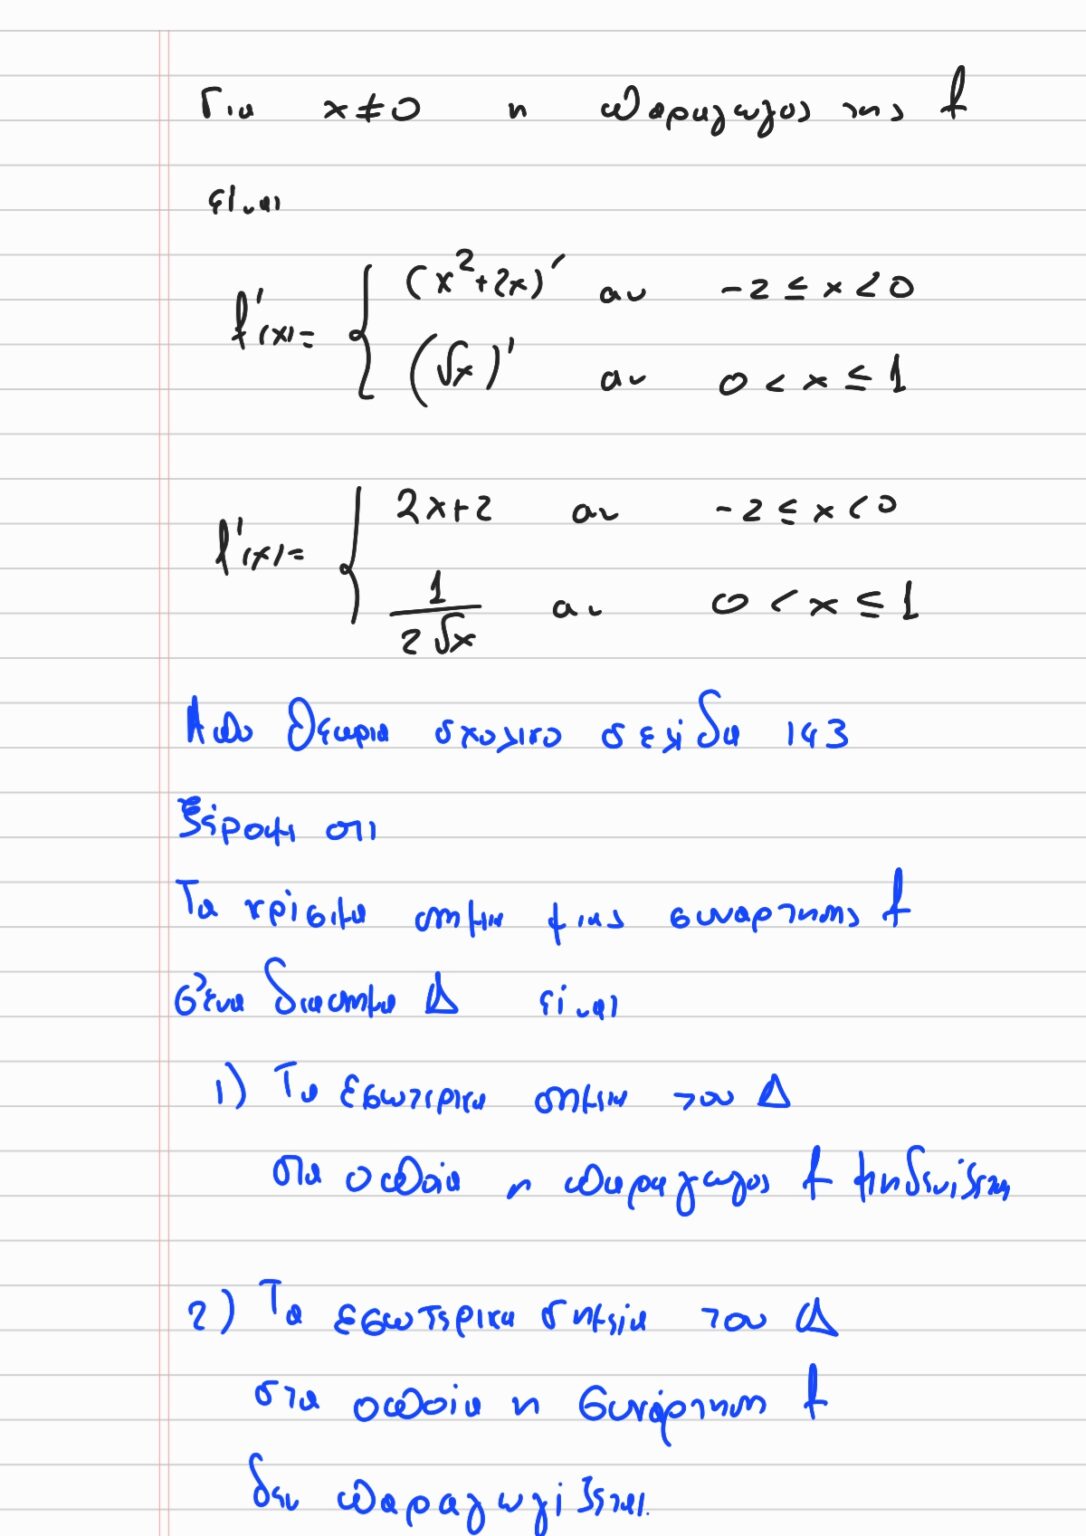 Για x≠0 η παραγωγος της f
είναι
f'(x)= { (x²+2x)' αν -2 ≤ x < 0
(√x)' αν 0 < x ≤ 1
f'(x)= { 2x+2 αν -2 ≤ x < 0
1/(2√x) αν 0 < x ≤ 1
Απο θεωρια σχολικο σελίδα 143
ξέρουμε οτι
Τα κρίσιμα σημεια μιας συναρτησης f
σ'ένα διαστημα Δ είναι
1) Τα εσωτερικα σημεια του Δ
στα οποία η παραγωγος f μηδενίζεται
2) Τα εσωτερικα σημεία του Δ
στα οποία η συνάρτηση f
δεν παραγωγίζεται.